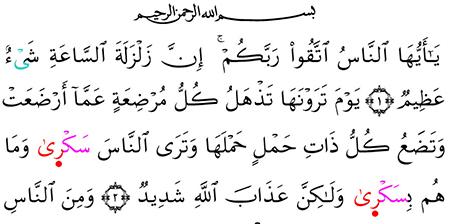 بسم الله الرحمن الرحيم
يَـٰٓأَيُّهَا ٱلنَّاسُ ٱتَّقُوا۟ رَبَّكُمْ ۚ إِنَّ زَلْزَلَةَ ٱلسَّاعَةِ شَىْءٌ
عَظِيمٌ ﴿١﴾ يَوْمَ تَرَوْنَهَا تَذْهَلُ كُلُّ مُرْضِعَةٍ عَمَّآ أَرْضَعَتْ
وَتَضَعُ كُلُّ ذَاتِ حَمْلٍ حَمْلَهَا وَتَرَى ٱلنَّاسَ سَكْرٜىٰ وَمَا
هُم بِسَكْرٜىٰ وَلَـٰكِنَّ عَذَابَ ٱللَّهِ شَدِيدٌ ﴿٢﴾ وَمِنَ ٱلنَّاسِ